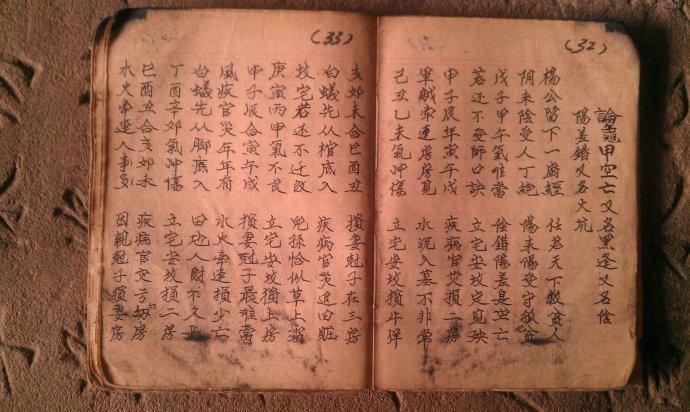 (32)
論龜甲空亡又名黑逢又名陰
陽差錯又名火坑
楊公留下一歲經 任君天下救貧人
阴未陰受人丁絶 陽未陽受守孤
戊子甲午氣難當 陰錯陽差是空亡
若还不受師口訣 立宅安坟定見殃
甲子辰年寅午戌 疾病官災損二房
軍賊牢連房房見 水泥入墓不非常
己丑乙未氣冲傷 立宅安坟損牛羊
(33)
亥卯未合巳酉丑 損妻尅子在三房
白蟻先从棺底入 疾病官災退田庄
坟宅若还不迁改 兒孫恰似草上霜
庚寅丙甲氣不良 立宅安坟損上房
甲子辰合寅午戌 損妻尅子最难當
風疾官災年年有 水火事連損少亡
白蟻先从脚底入 田地人財不久
丁酉辛卯氣冲傷 立宅安坟損二房
巳酉丑合亥卯未 疾病官災房
水火牽連人事多 因親尅子損妻房